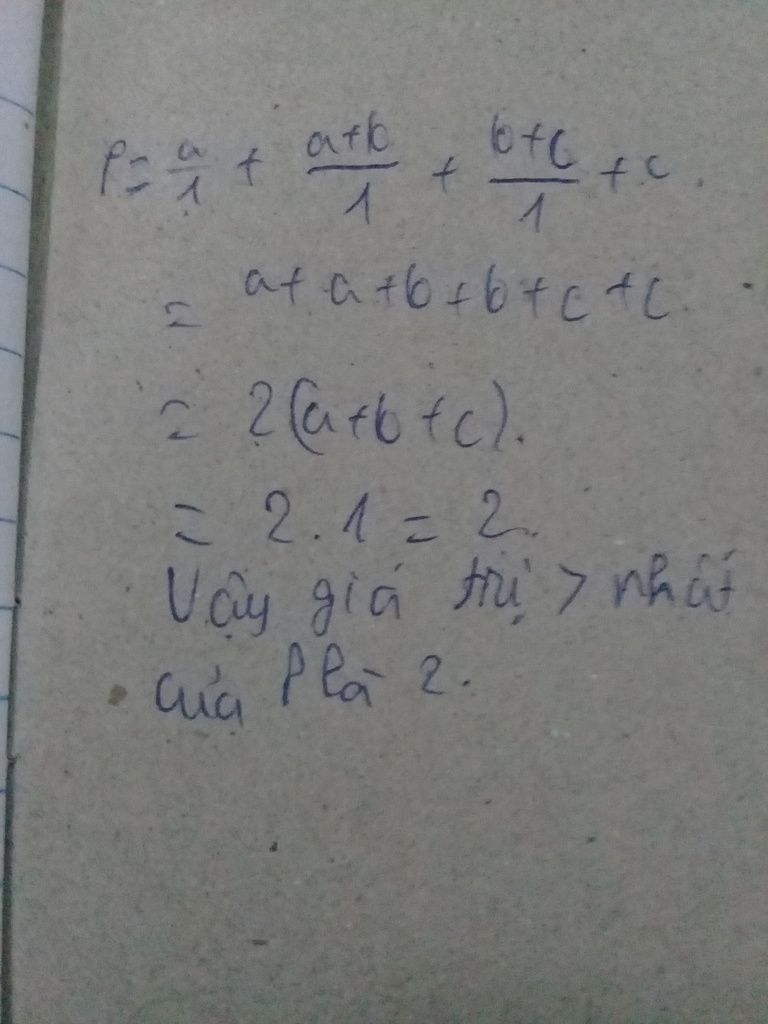 P = a/1 + (a+b)/1 + (b+c)/1 + c.
= a + a + b + b + c + c.
= 2(a+b+c).
= 2.1 = 2.
Vậy giá trị > nhất
của P là 2.